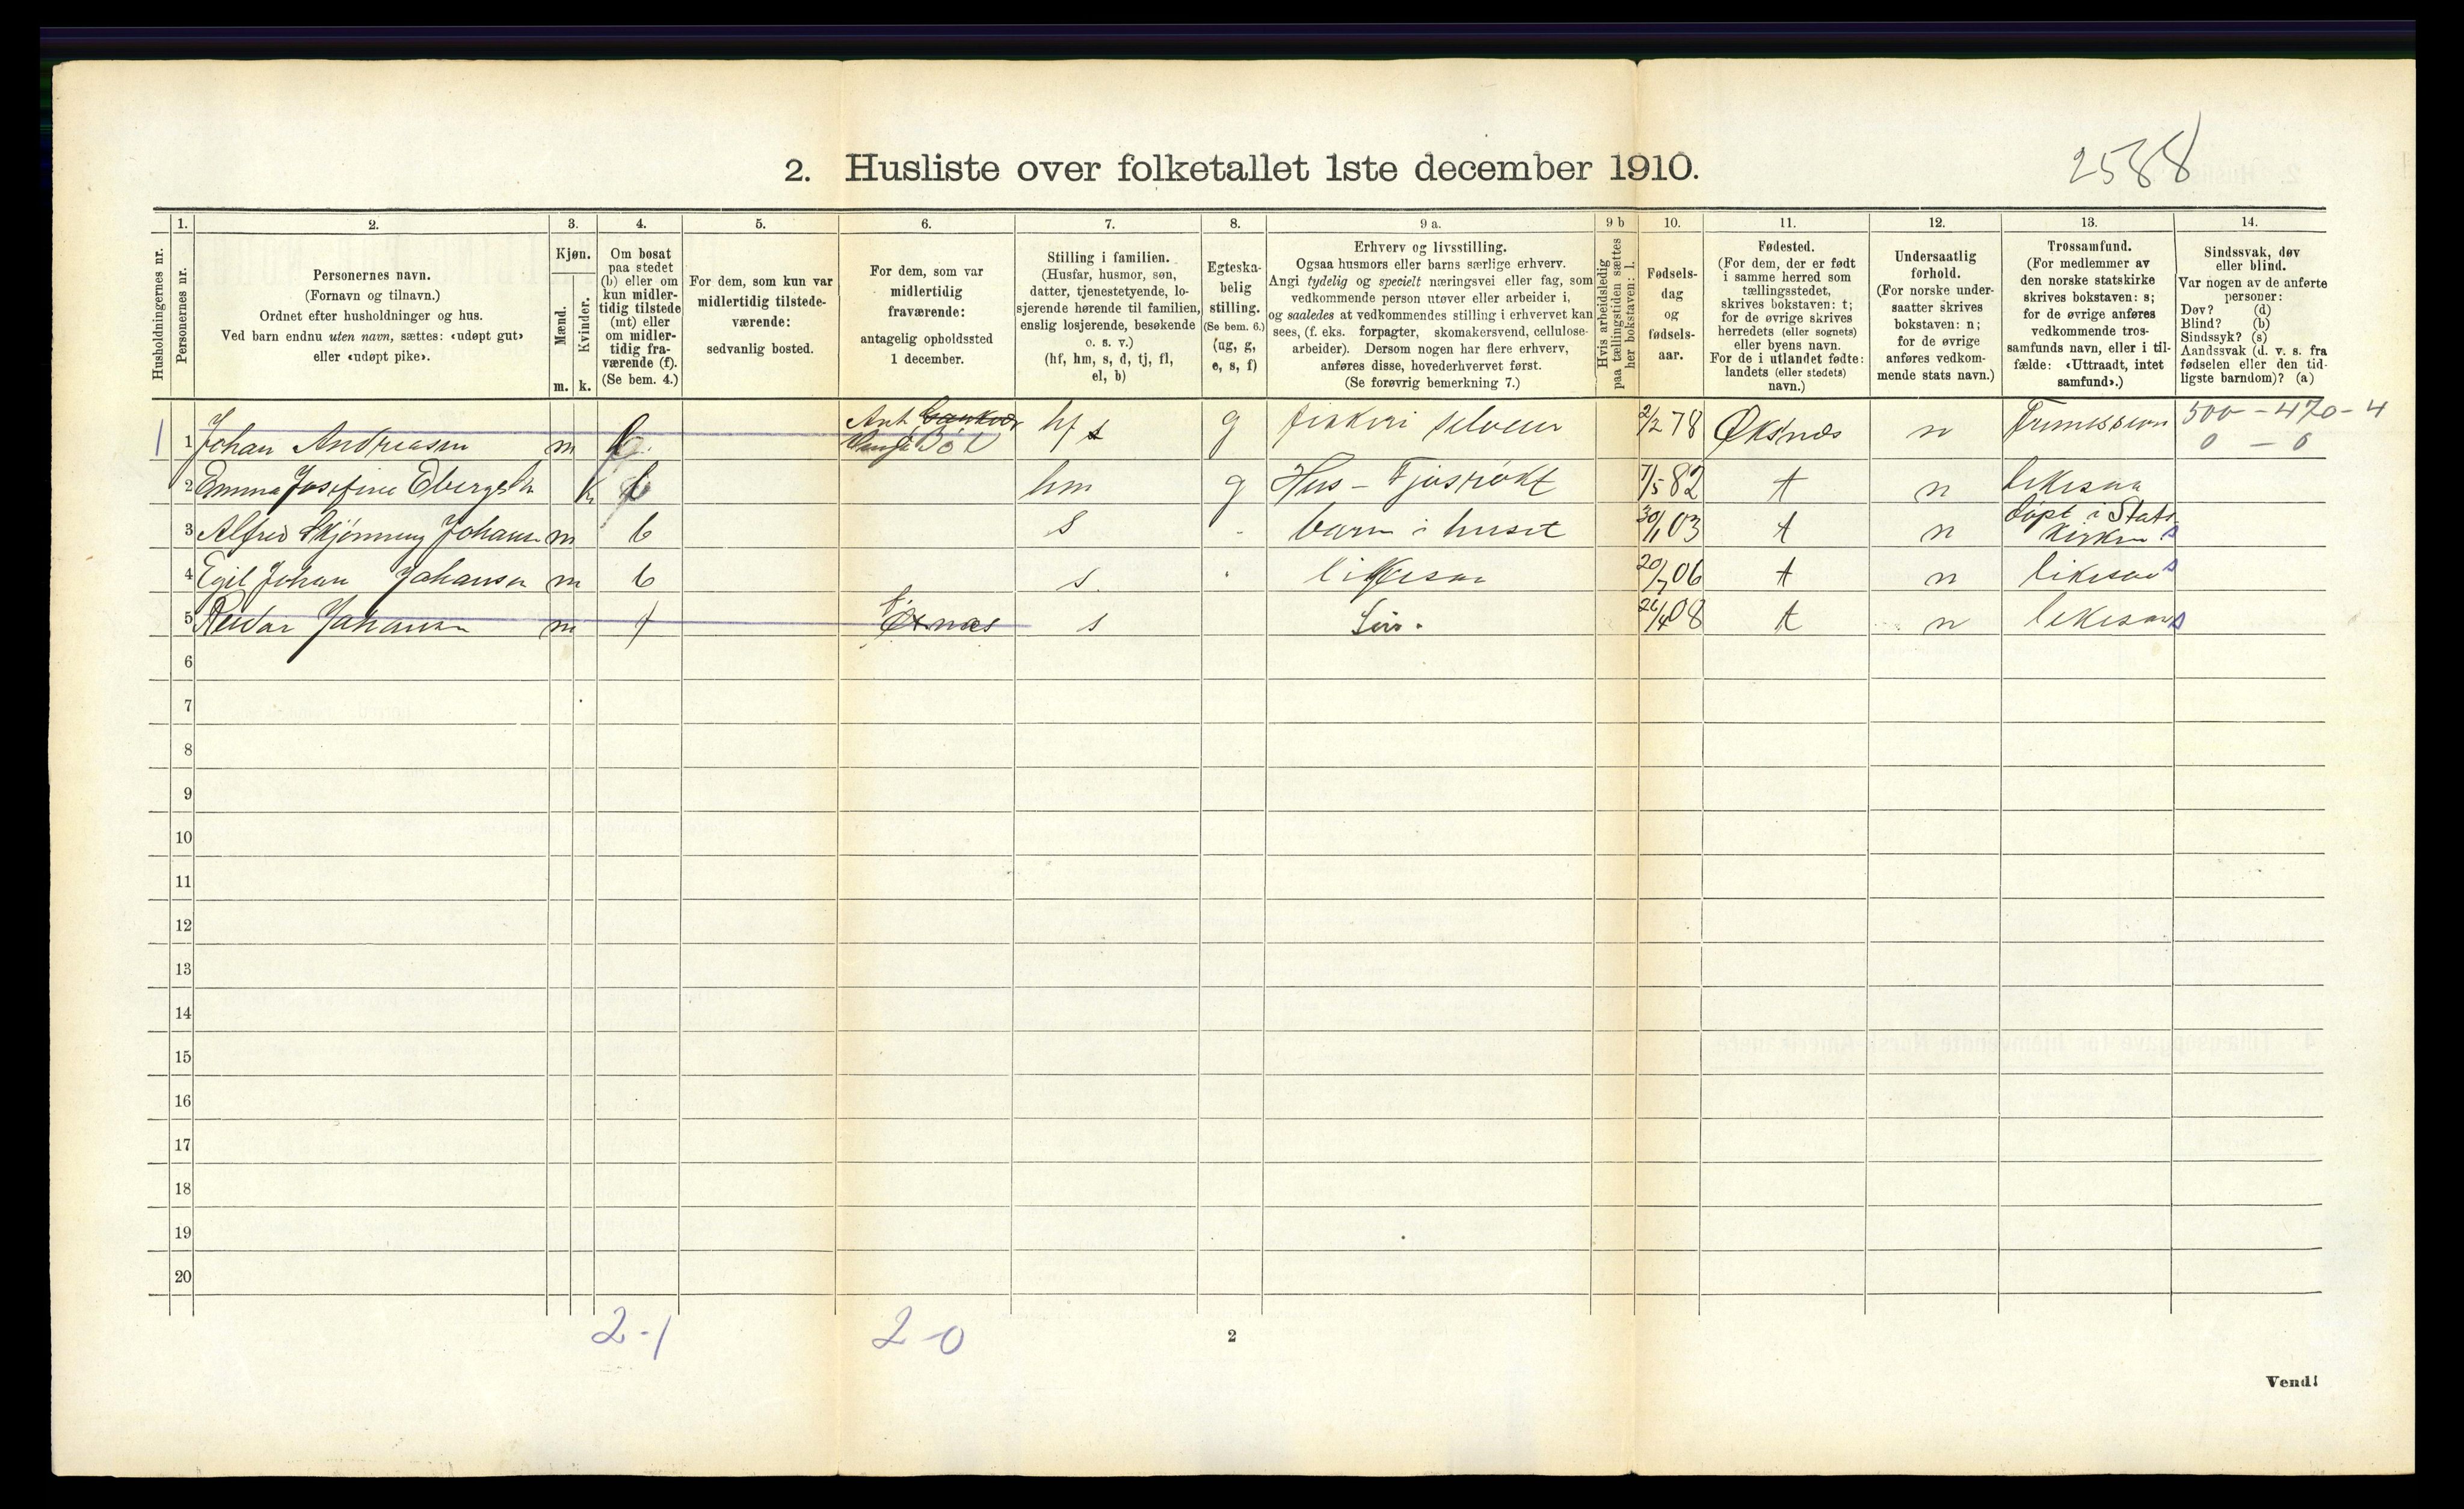 2. Husliste over folketallet 1ste december 1910.
2588
1. 2. 3. 4. 5. 6. 7. 8. 9 a. 9 b 10. 11. 12. 13. 14.
Husholdningernes nr.
Personernes nr.
Personernes navn.
(Fornavn og tilnavn.)
Ordnet efter husholdninger og hus.
Ved barn endnu uten navn, sættes: «udøpt gut»
eller «udøpt pike».
Kjøn.
Mænd.
Kvinder.
m. k.
Om bosat
paa stedet
(b) eller om
kun midler-
tidig tilstede
(mt) eller
om midler-
tidig fra-
værende (f).
(Se bem. 4.)
For dem, som kun var
midlertidig tilstede-
værende:
sedvanlig bosted.
For dem, som var
midlertidig
fraværende:
antagelig opholdssted
1 december.
Stilling i familien.
(Husfar, husmor, søn,
datter, tjenestetyende, lo-
sjerende hørende til familien,
enslig losjerende, besøkende
o. s. v.)
(hf, hm, s, d, tj, fl,
el, b)
Egteska-
belig
stilling.
(Se bem. 6.)
(ug, g,
e, s, f)
Erhverv og livsstilling.
Ogsaa husmors eller barns særlige erhverv.
Angi tydelig og specielt næringsvei eller fag, som
vedkommende person utøver eller arbeider i,
og saaledes at vedkommendes stilling i erhvervet kan
sees, (f. eks. forpagter, skomakersvend, cellulose-
arbeider). Dersom nogen har flere erhverv,
anføres disse, hovederhvervet først.
(Se forøvrig bemerkning 7.)
Hvis arbeidsledig
paa tællingstiden sættes
her bokstaven: l.
Fødsels-
dag
og
fødsels-
aar.
Fødested.
(For dem, der er født
i samme herred som
tællingsstedet,
skrives bokstaven: t;
for de øvrige skrives
herredets (eller sognets)
eller byens navn.
For de i utlandet fødte:
landets (eller stedets)
navn.)
Undersaatlig
forhold.
(For norske under-
saatter skrives
bokstaven: n;
for de øvrige
anføres vedkom-
mende stats navn.)
Trossamfund.
(For medlemmer av
den norske statskirke
skrives bokstaven: s;
for de øvrige anføres
vedkommende tros-
samfunds navn, eller i til-
fælde: «Uttraadt, intet
samfund».)
Sindssvak, døv
eller blind.
Var nogen av de anførte
personer:
Døv? (d)
Blind? (b)
Sindssyk? (s)
Aandssvak (d. v. s. fra
fødselen eller den tid-
ligste barndom)? (a)
1 1 Johan Andreasen m Bö hf g fiskeri selveier 2/2 78 Øksnæs n 500 - 470 - 4
0 - 0
2 Emma Josefine k b hm g Hus - Fjøsrøkt 7/5 82 t n likesaa
3 Alfred Skjönning Johansen m b s - barn i huset 30/1 03 t n döpt i Stats
Kirken s
4 Egil Johan Johansen m b s likesaa 20/7 06 t n likesaa s
5 Reidar Johansen m f s 26/4 08 t n likesaa s
6
7
8
9
10
11
12
13
14
15
16
17
18
19
20
2-1 2-0
2
Vend!